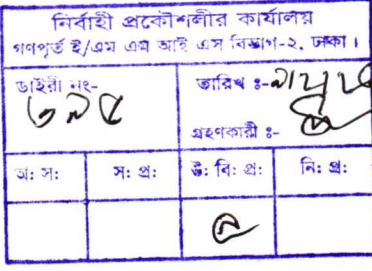 নির্বাহী প্রকৌশলীর কার্যালয়
গণপূর্ত ই/এম এম আই এস বিভাগ-২, ঢাকা।
ডাইরী নং-
তারিখ ঃ-
৩৯৫
গ্রহণকারী ঃ-
অ: স: স: প্র: উ: বি: প্র: নি: প্র: